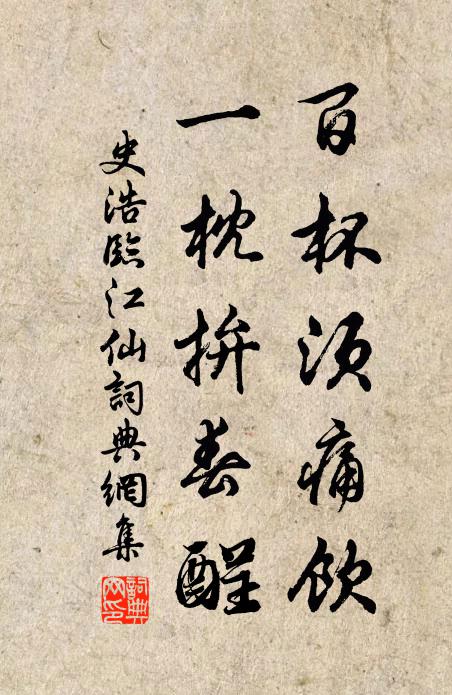 百杯須痛飲
一枕拚春醒
史浩臨江仙詞典網集
詞典網印